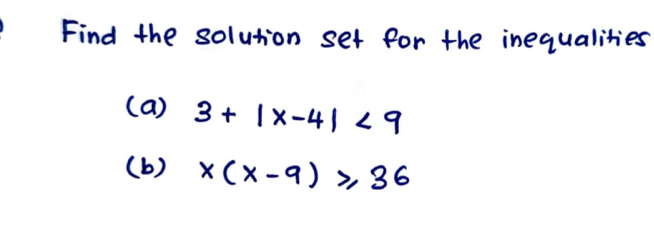 Find the solution set for the inequalities
(a) 3 + |x-4| < 9
(b) x(x-9) ⩾ 36